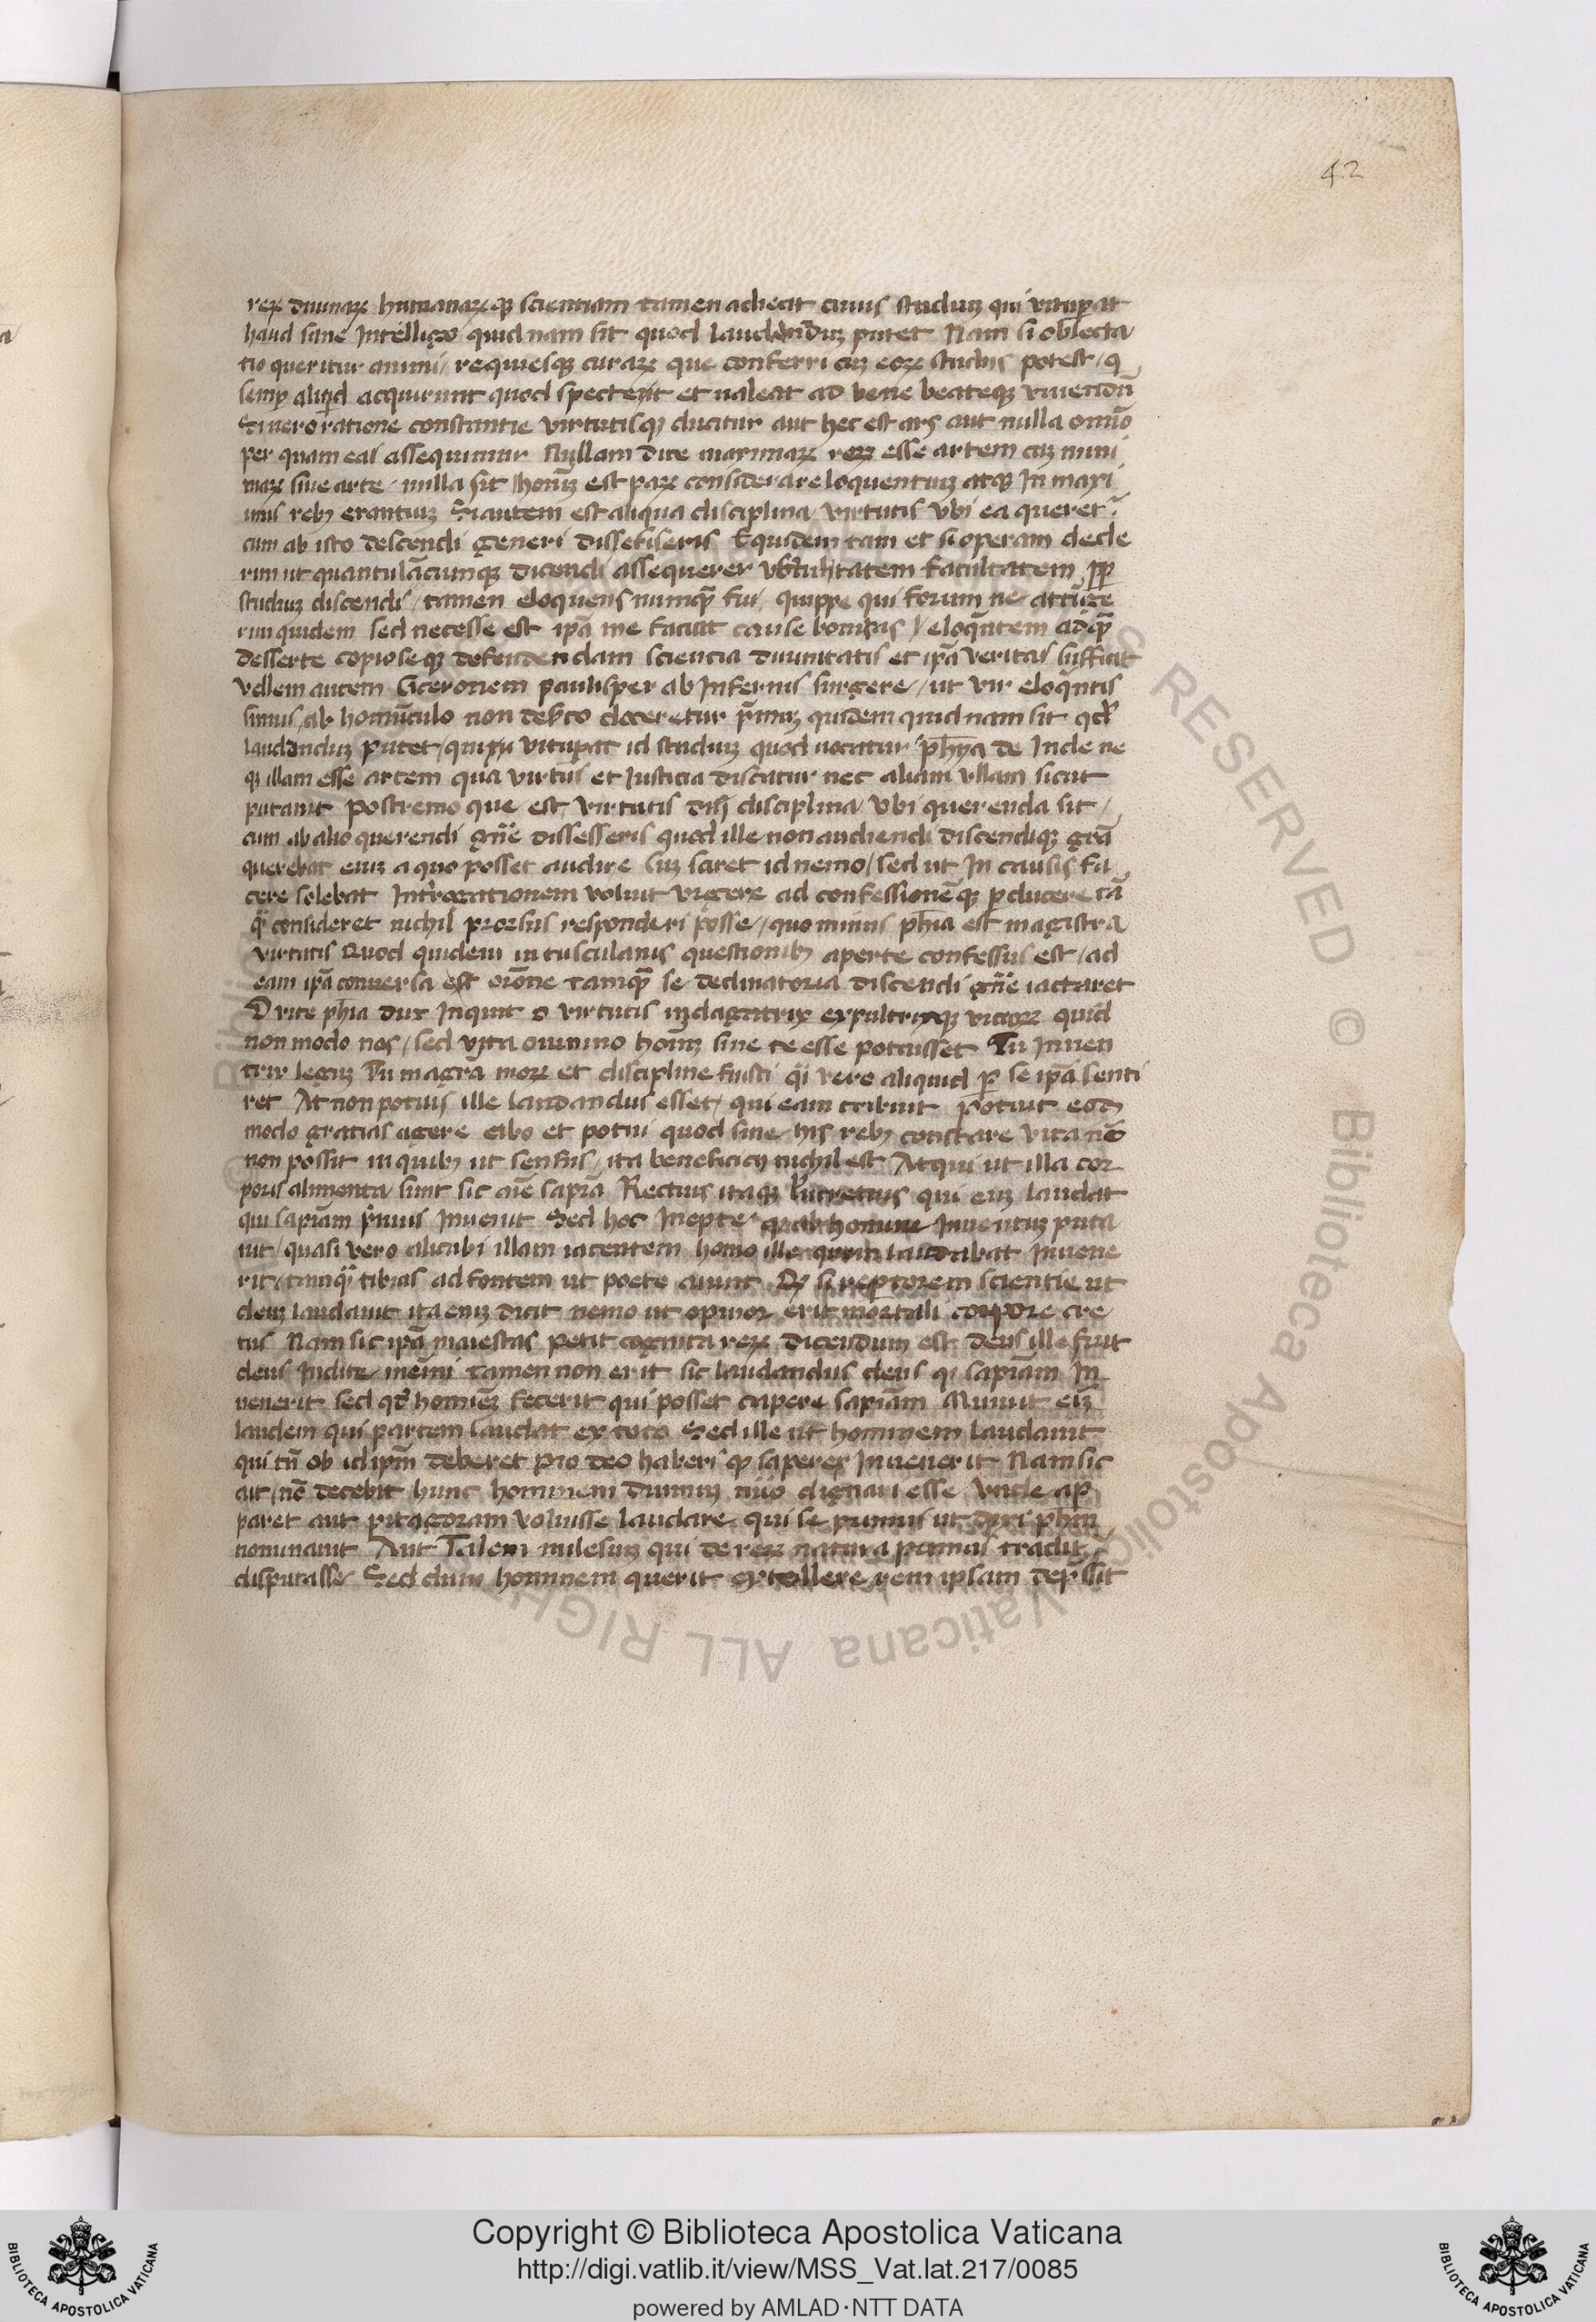 42
reꝝ diuinaꝝ humanaꝝqꝫ scientiam tamen adiecit cuius studiuꝫ qui vituꝑat
haud sane Intelligo quid nam sit quod laudanduꝫ putet Nam si oblecta
tio queritur animi / requiesqꝫ curaꝝ que conferri cuꝫ eoꝝ studiis potest / q
semꝑ aliqid acquirunt quod spectet et ualeat ad bene beateqꝫ viuendū
Si uero ratione constantie virtutisqꝫ ducitur aut hec est ars aut nulla omīo
per quam eas assequimur Nullam dice maximaꝝ reꝝ esse artem cuꝫ mini
maꝝ sine arte nulla sit hominuꝫ est paꝝ considerare loquentiuꝫ atqꝫ In maxi
mis rebꝫ erantiuꝫ Si autem est aliqua disciplina virtutis vbi ea queret᷑
cum ab isto descendi generi dissefiseris Equidem tam et si operam dede
rim ut quantulācumqꝫ dicendi assequerer facultatem ꝓp
studiuꝫ discendi / tamen eloquens numqꝫ̄ fui / quippe qui forum ne attīge
rim quidem sed necesse est ip̄a me faciat cause bonitas / eloqntem adqꝫ̄
desserte copioseqꝫ defendendam sciencia diuinitatis et ip̄a veritas sufficiat
vellem autem Ciceronem paulisper ab Infernis surgere / ut vir eloqntis
simus / ab homūculo non deserto doceretur p̄imuꝫ quidem quid nam sit qd̓
laudanduꝫ putet / vituꝑat id studiuꝫ quod uocatur phy̅a de Inde ne
qꝫ illam esse artem qua virtus et Iusticia discatur nec aliam vllam sicut
putauit postremo que est virtutis disciplina / vbi querenda sit /
cum ab alio querendi gn̄e dissesseris quod ille non audiendi discendiqꝫ grā
querebat eniꝫ a quo posset audire cuꝫ sciret id nemo / sed ut In causis fa
cere solebat Introgationem voluit vrgere ad confessionēqꝫ ꝑducere tā
q̄ consideret nichil prorsus responderi posse / quo minus phīa est magistra
virtutis Quod quidem in tusculanis questionibꝫ aperte confessus est / ad
eam ip̄a conuersa est oīone tamqꝫ̄ se declinatoria discendi gn̄e iactaret
O vite phīa dux Inquit o virtutis indagatrix expultrixqꝫ vicioꝝ quid
non modo nos / sed vita omnino hominuꝫ sine te esse potuisset Tu Inuen
trix leguꝫ Tu magrā moꝝ et discipline fuisti q̄i vero aliquid ꝑ se ip̄a senti
ret At non potius ille laudandus esset / qui eam tribuit Potuit eodꝫ
modo gratias agere cibo et potui quod sine his rebꝫ constare vita nō
non possit in quibꝫ ut sensus / ita beneficij nichil est Atqui ut illa cor
poris alimenta sunt sic aīe sapīa Rectius itaqꝫ lucretius qui eniꝫ laudat
qui sapīam p̄mus Inuenit Sed hoc Inepte qꝫ ab homine Inuentuꝫ puta
uit / quasi vero alicubi illam iacentem homo ille laudabat Inuene
rit / tamqꝫ̄ tibias ad fontem ut poete aiunt Qꝫ si reptorem scientie ut
deuꝫ laudauit ita eniꝫ dicit nemo ut opinor erit mortali corpore cre
tus Nam sic ip̄a maiestas petit cognita reꝝ dicendum est deus ille fuit
deus Indite mēmi tamen non erit sic laudandus deus q sapīam In
uenerit sed qd̓ homiēꝫ fecerit qui posset capere sapīam Minuit eīꝫ
laudem qui partem laudat ex toto Sed ille ut hominem laudauit
qui tn̄ ob id ip̄m deberet pro deo haberi qꝫ saperet Inuenerit Nam sic
ait / nō decebit hunc hominem diuinuꝫ niīo dignari esse Vnde ap
paret aut pitagoram voluisse laudare qui se primus ut dixi phīm
nominauit Aut Talem milesiuꝫ qui de reꝝ natura primus tradit᷑
disputasse Sed dum hominem querit extollere rem ipsam dep̄ssit
Copyright © Biblioteca Apostolica Vaticana
http://digi.vatlib.it/view/MSS_Vat.lat.217/0085
powered by AMLAD·NTT DATA
BIBLIOTECA APOSTOLICA VATICANA
BIBLIOTECA APOSTOLICA VATICANA